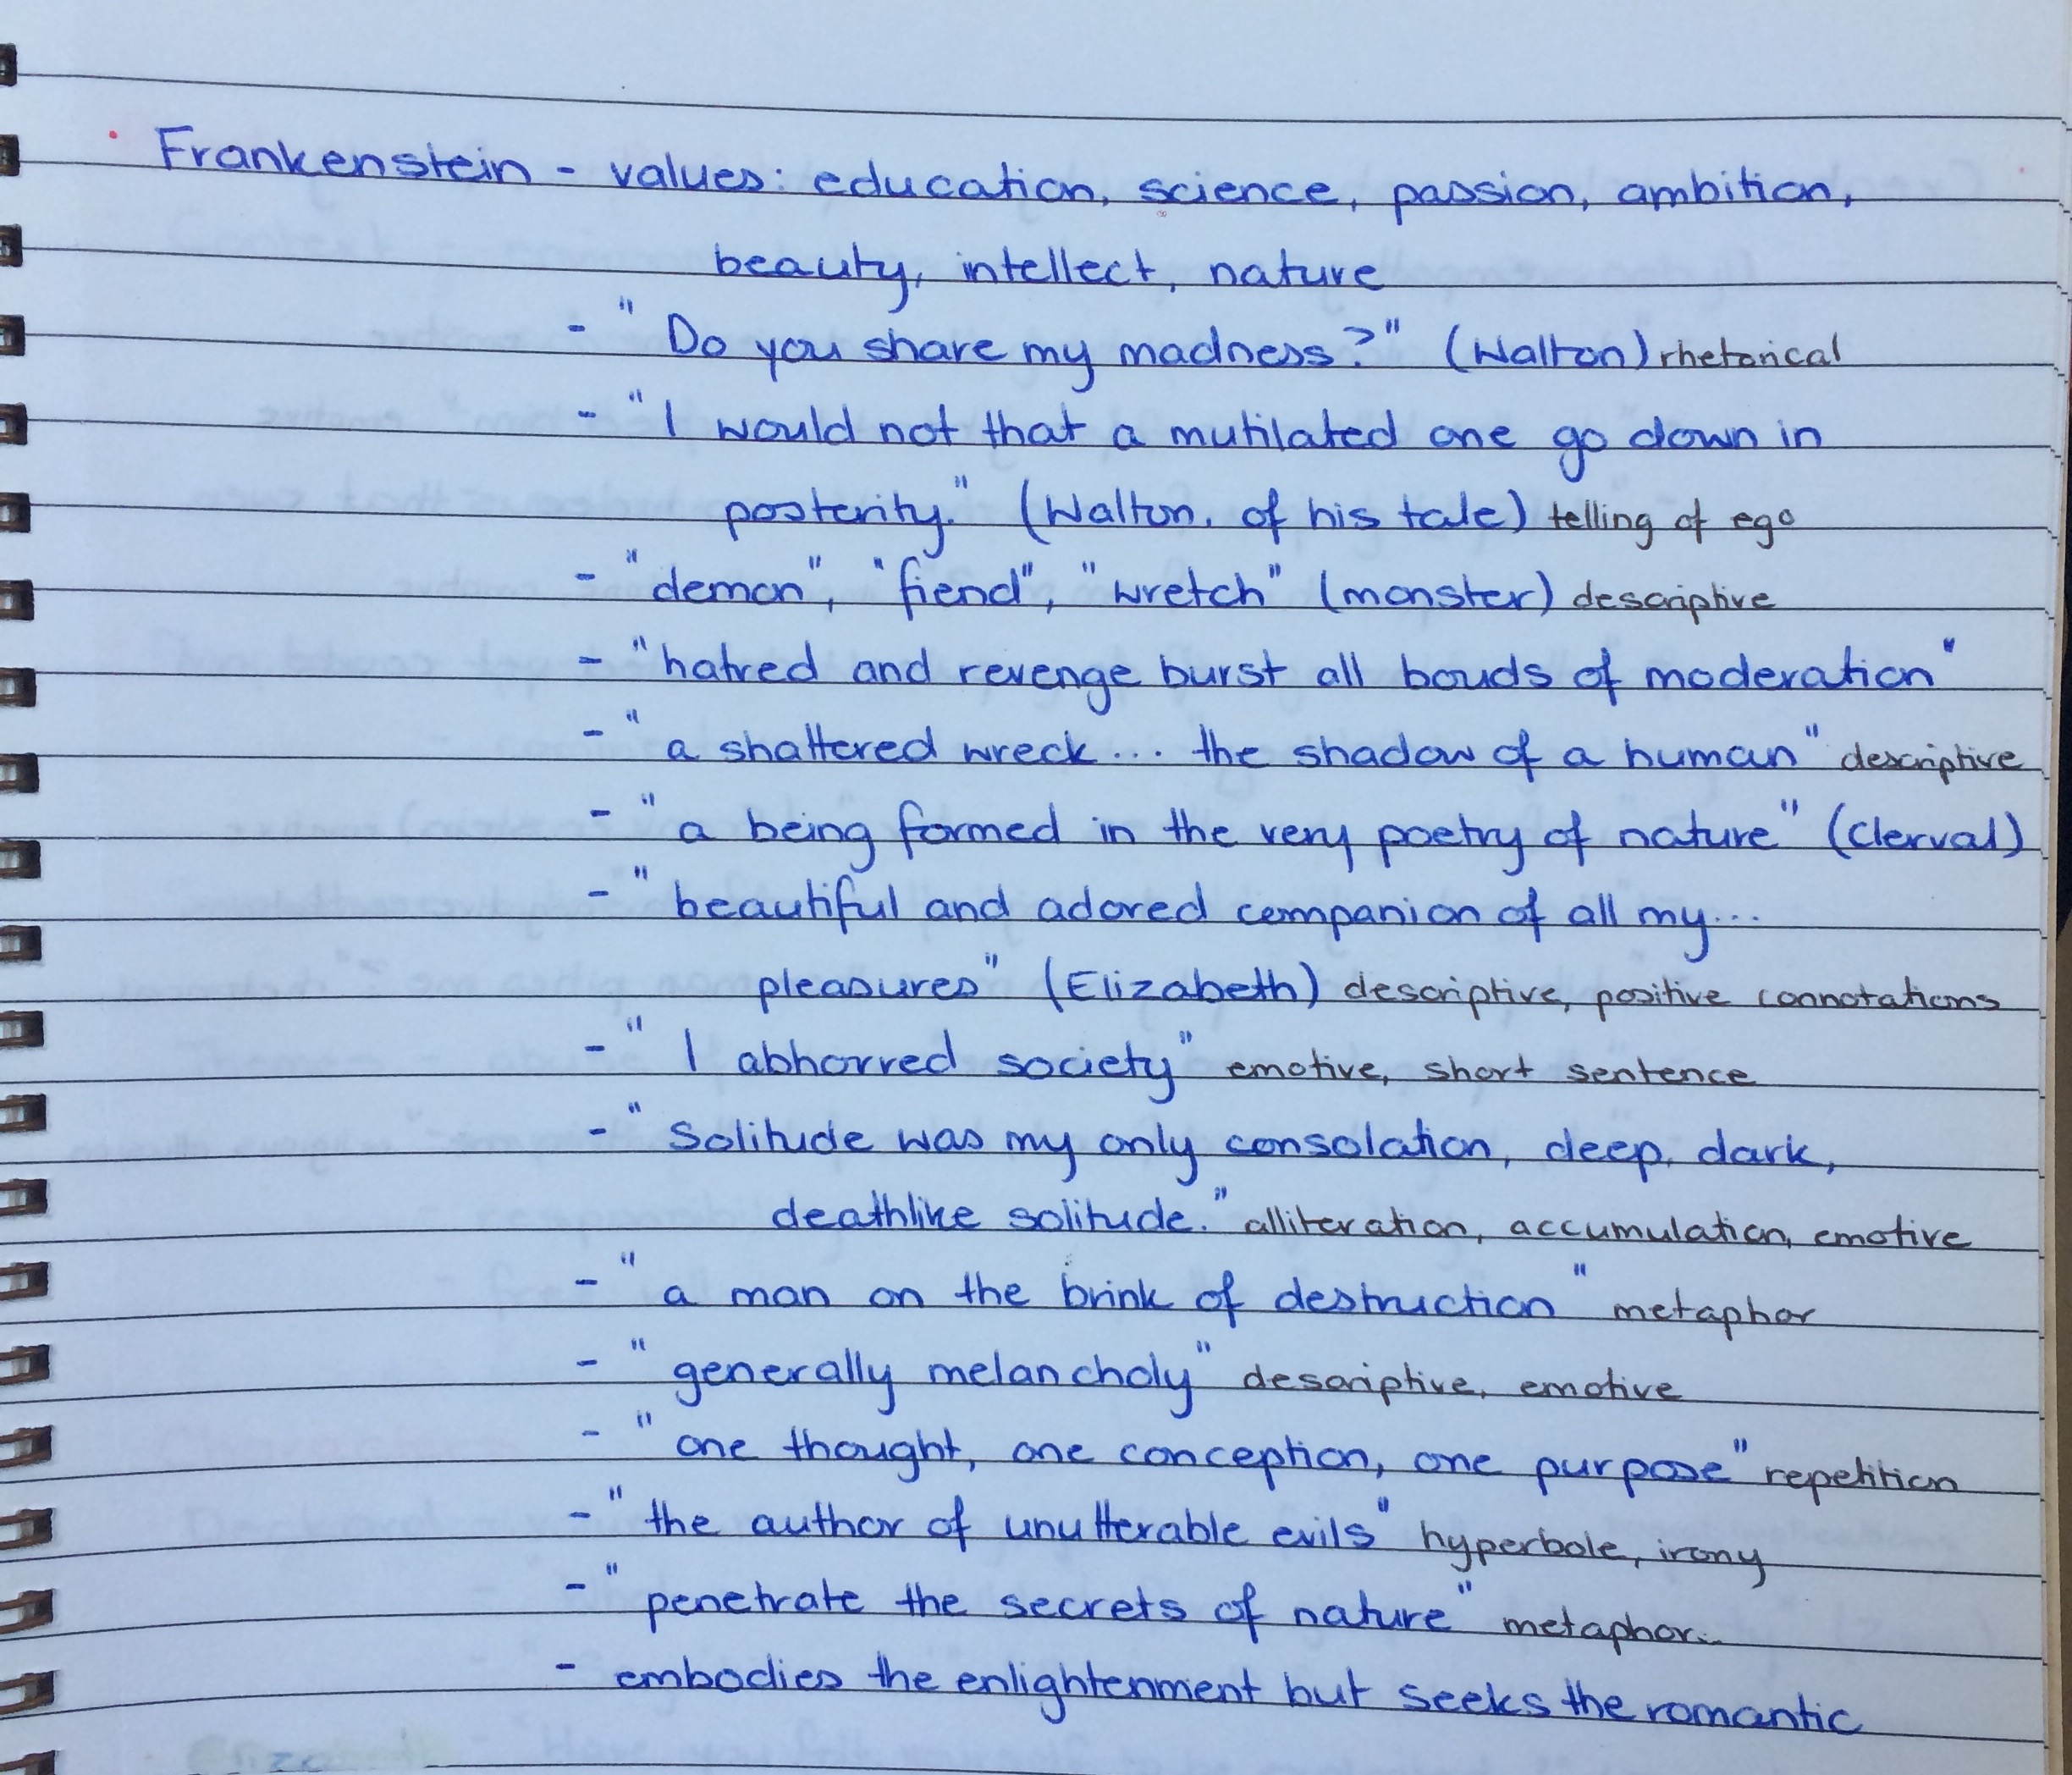 Frankenstein - values: education, science, passion, ambition,
beauty, intellect, nature
- "Do you share my madness?" (Walton) rhetorical
- "I would not that a mutilated one go down in
posterity." (Walton, of his tale) telling of ego
- "demon", "fiend", "wretch" (monster) descriptive
- "hatred and revenge burst all bouds of moderation"
- "a shattered wreck... the shadow of a human" descriptive
- "a being formed in the very poetry of nature" (Clerval)
- "beautiful and adored companion of all my...
pleasures" (Elizabeth) descriptive, positive connotations
- "I abhorred society" emotive, short sentence
- "Solitude was my only consolation, deep, dark,
deathlike solitude." alliteration, accumulation, emotive
- "a man on the brink of destruction" metaphor
- "generally melancholy" descriptive, emotive
- "one thought, one conception, one purpose" repetition
- "the author of unutterable evils" hyperbole, irony
- "penetrate the secrets of nature" metaphor..
- embodies the enlightenment but seeks the romantic